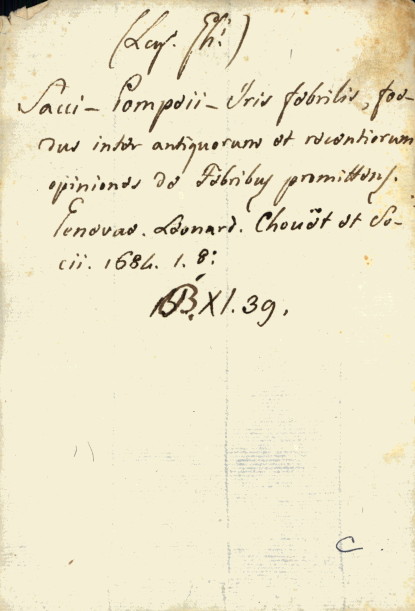 Sacci - Pompeii - Iris febrilis, foe-
dus inter antiquorum et recentiorum
opiniones de Febribus promittens.
Genevae. Leonard. Chouët et So-
cii. 1684. 1. 8:
XI. 39.
C